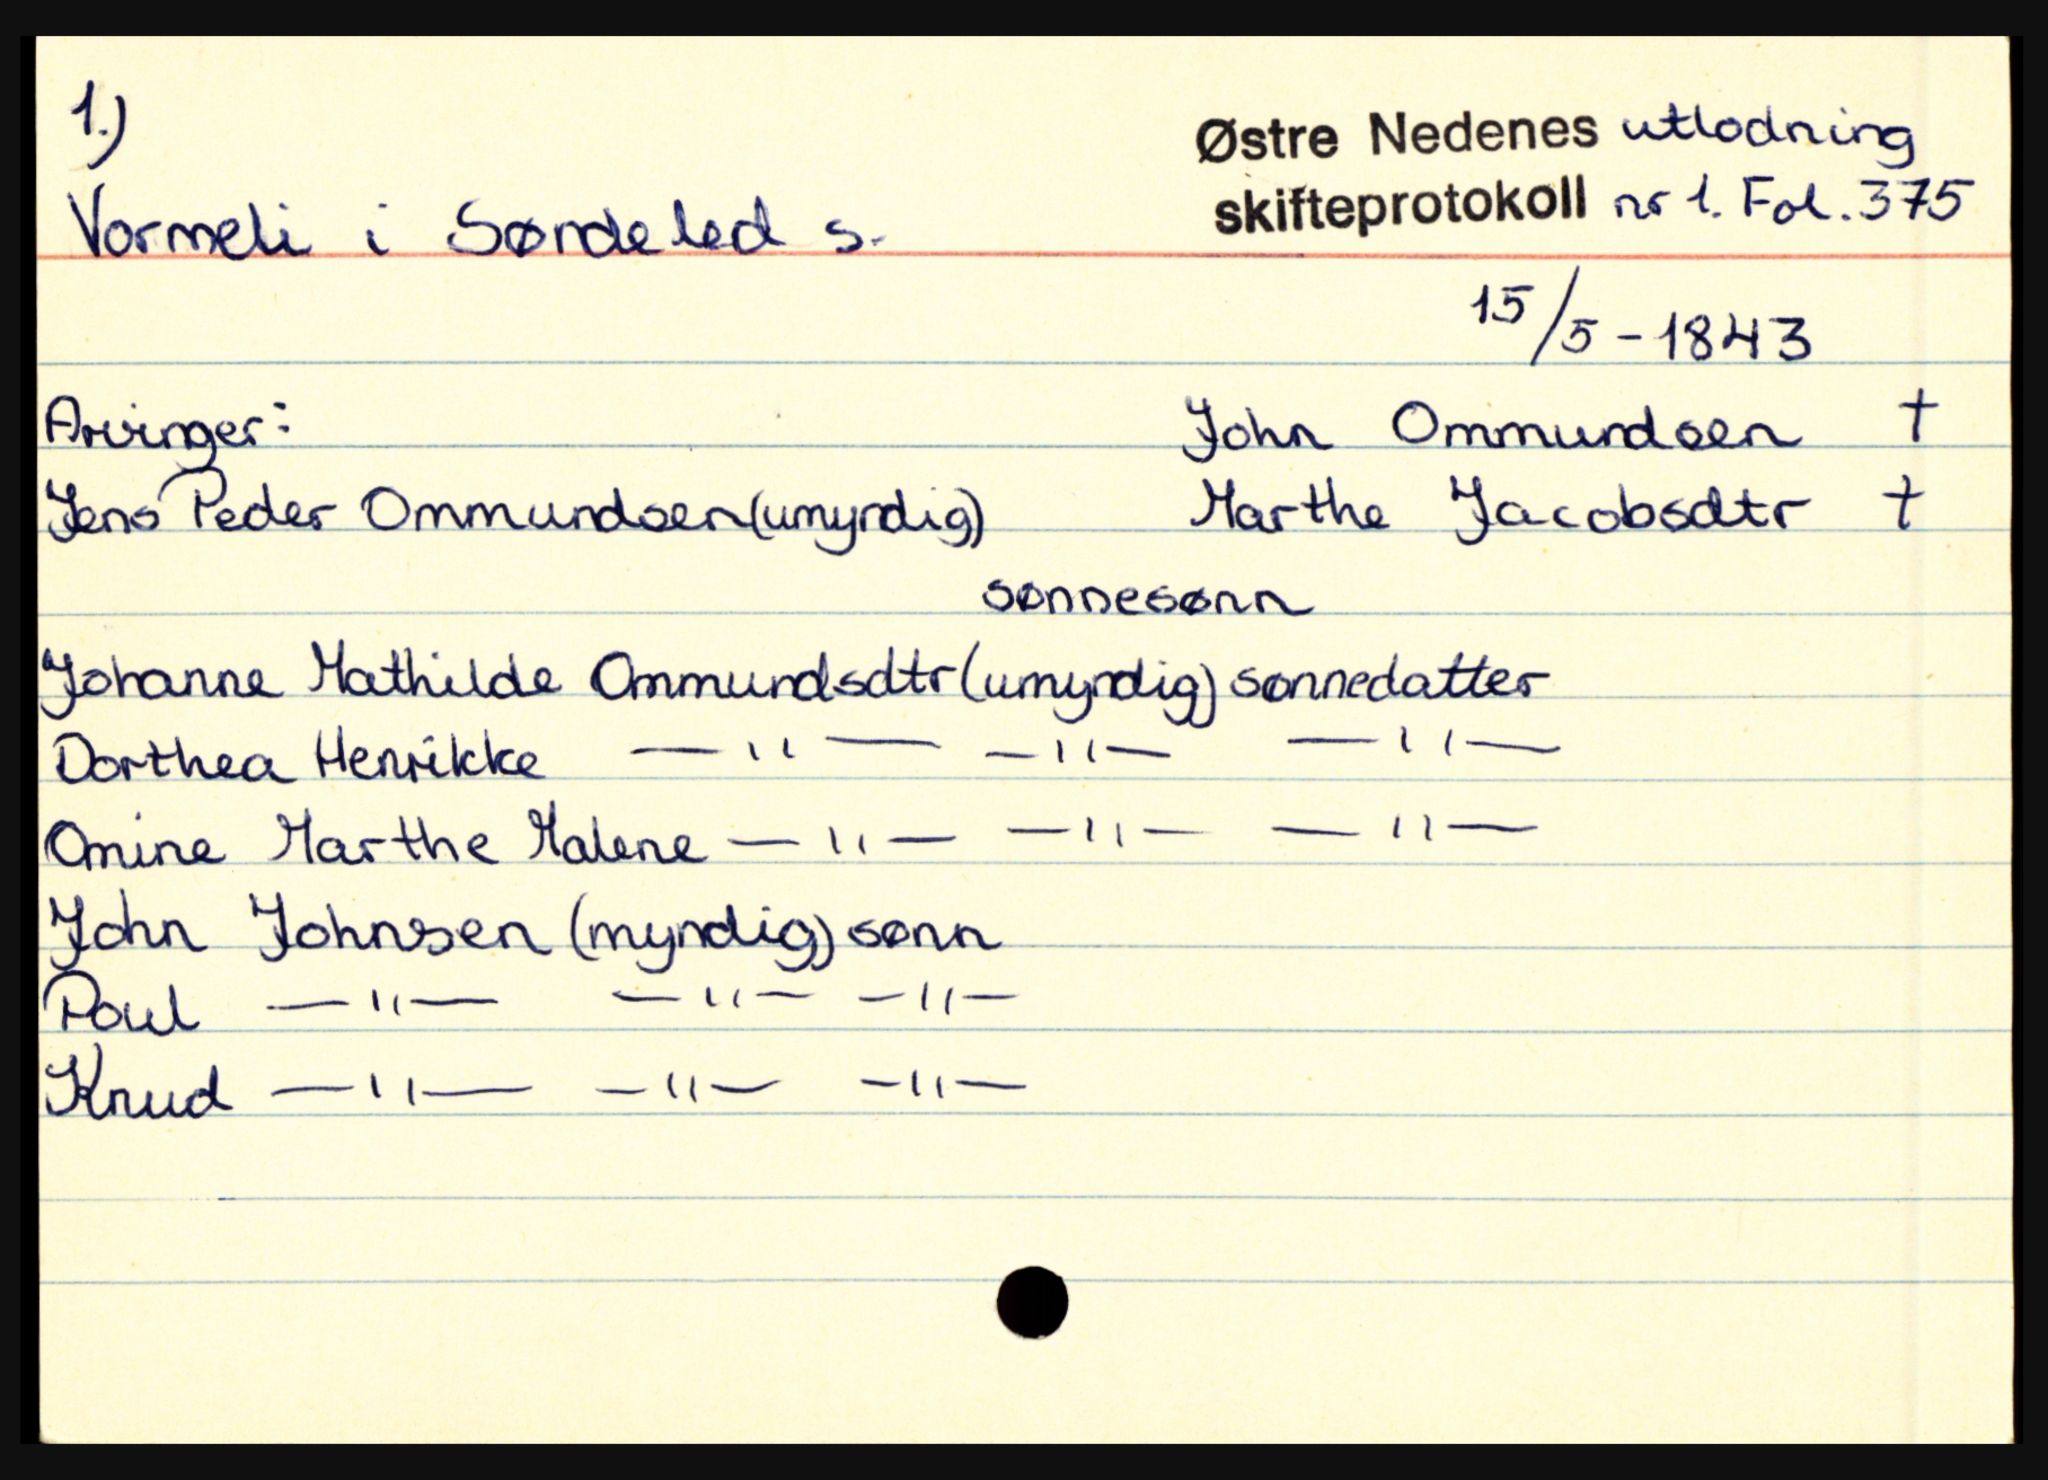 1.)
Østre Nedenes utlodning
Vormeli i Søndeled s.
skifteprotokoll nr 1. Fol. 375
15/5-1843
Arvinger:
John Ommundsen †
Jens Peder Ommundsen (umyndig)
Marthe Jacobsdtr †
sønnesønn
Johanne Mathilde Ommundsdtr (umyndig) sønnedatter
Dorthea Henrikke —"— —"— —"—
Omine Marthe Malene —"— —"— —"—
John Johnsen (myndig) sønn
Poul —"— —"— —"—
Knud —"— —"— —"—